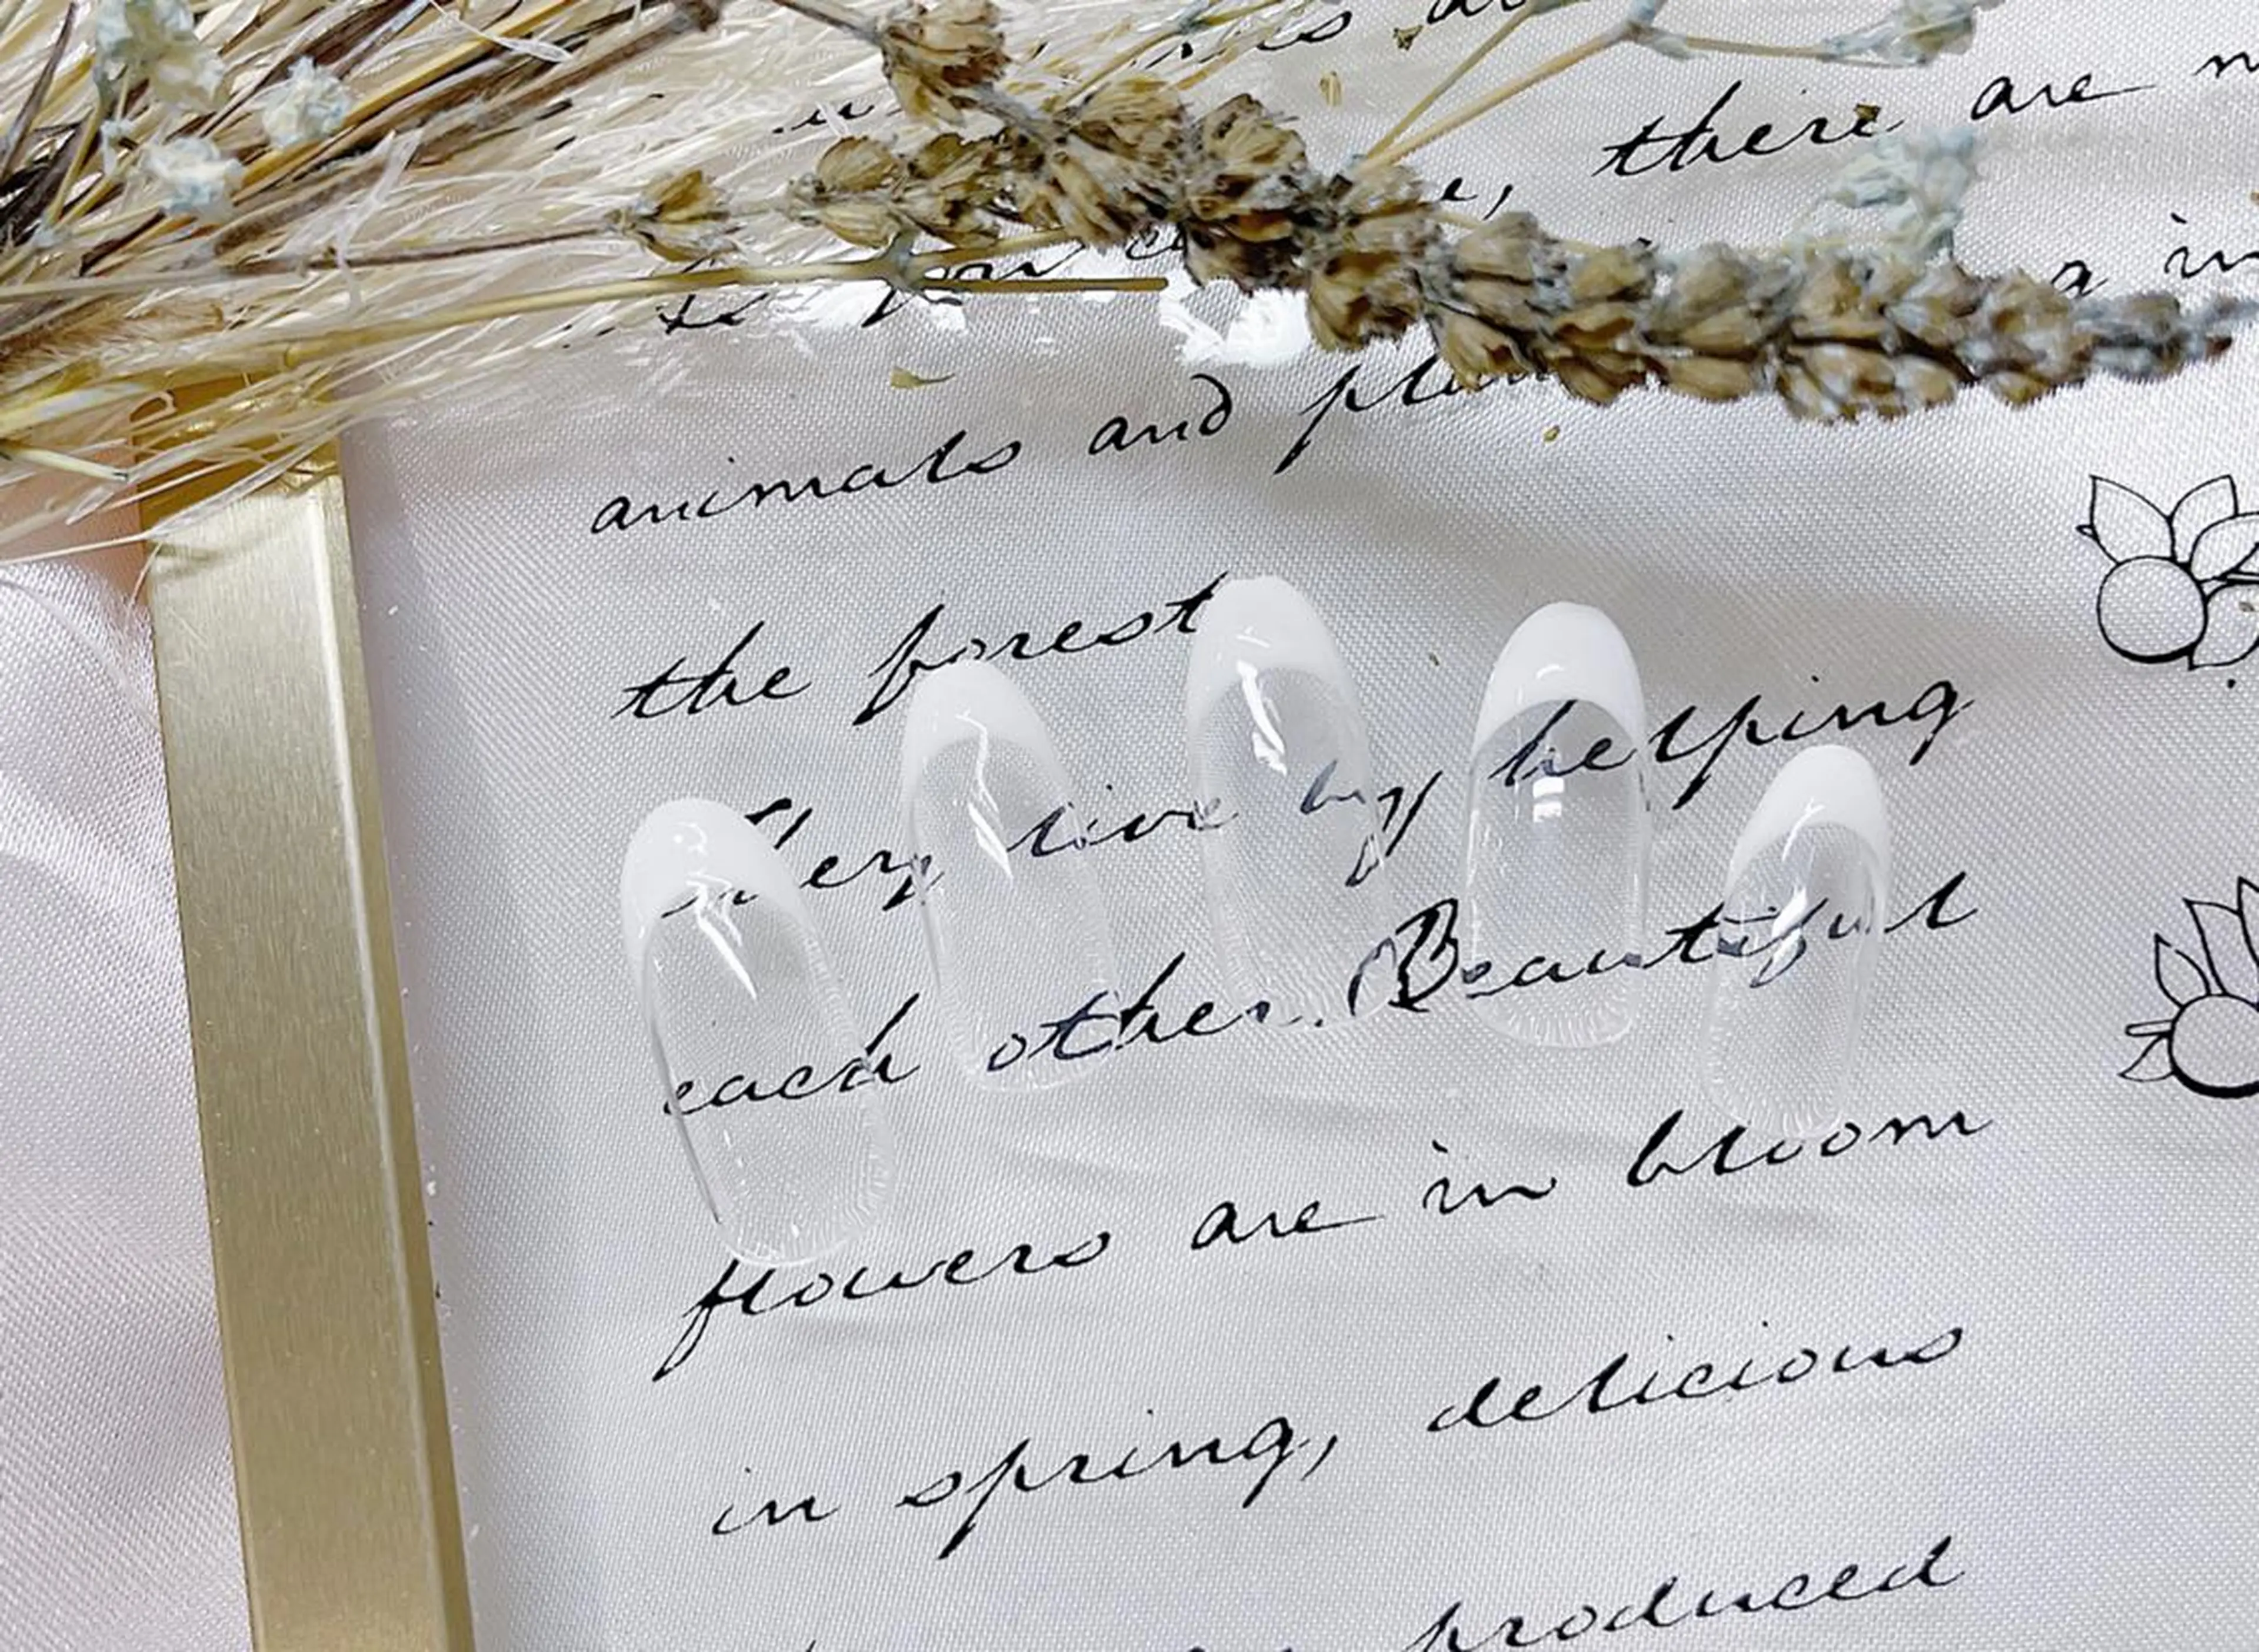 there are
a in
animals and
the forest
They live by helping
each other. Beautiful
flowers are in bloom
in spring, delicious
produced